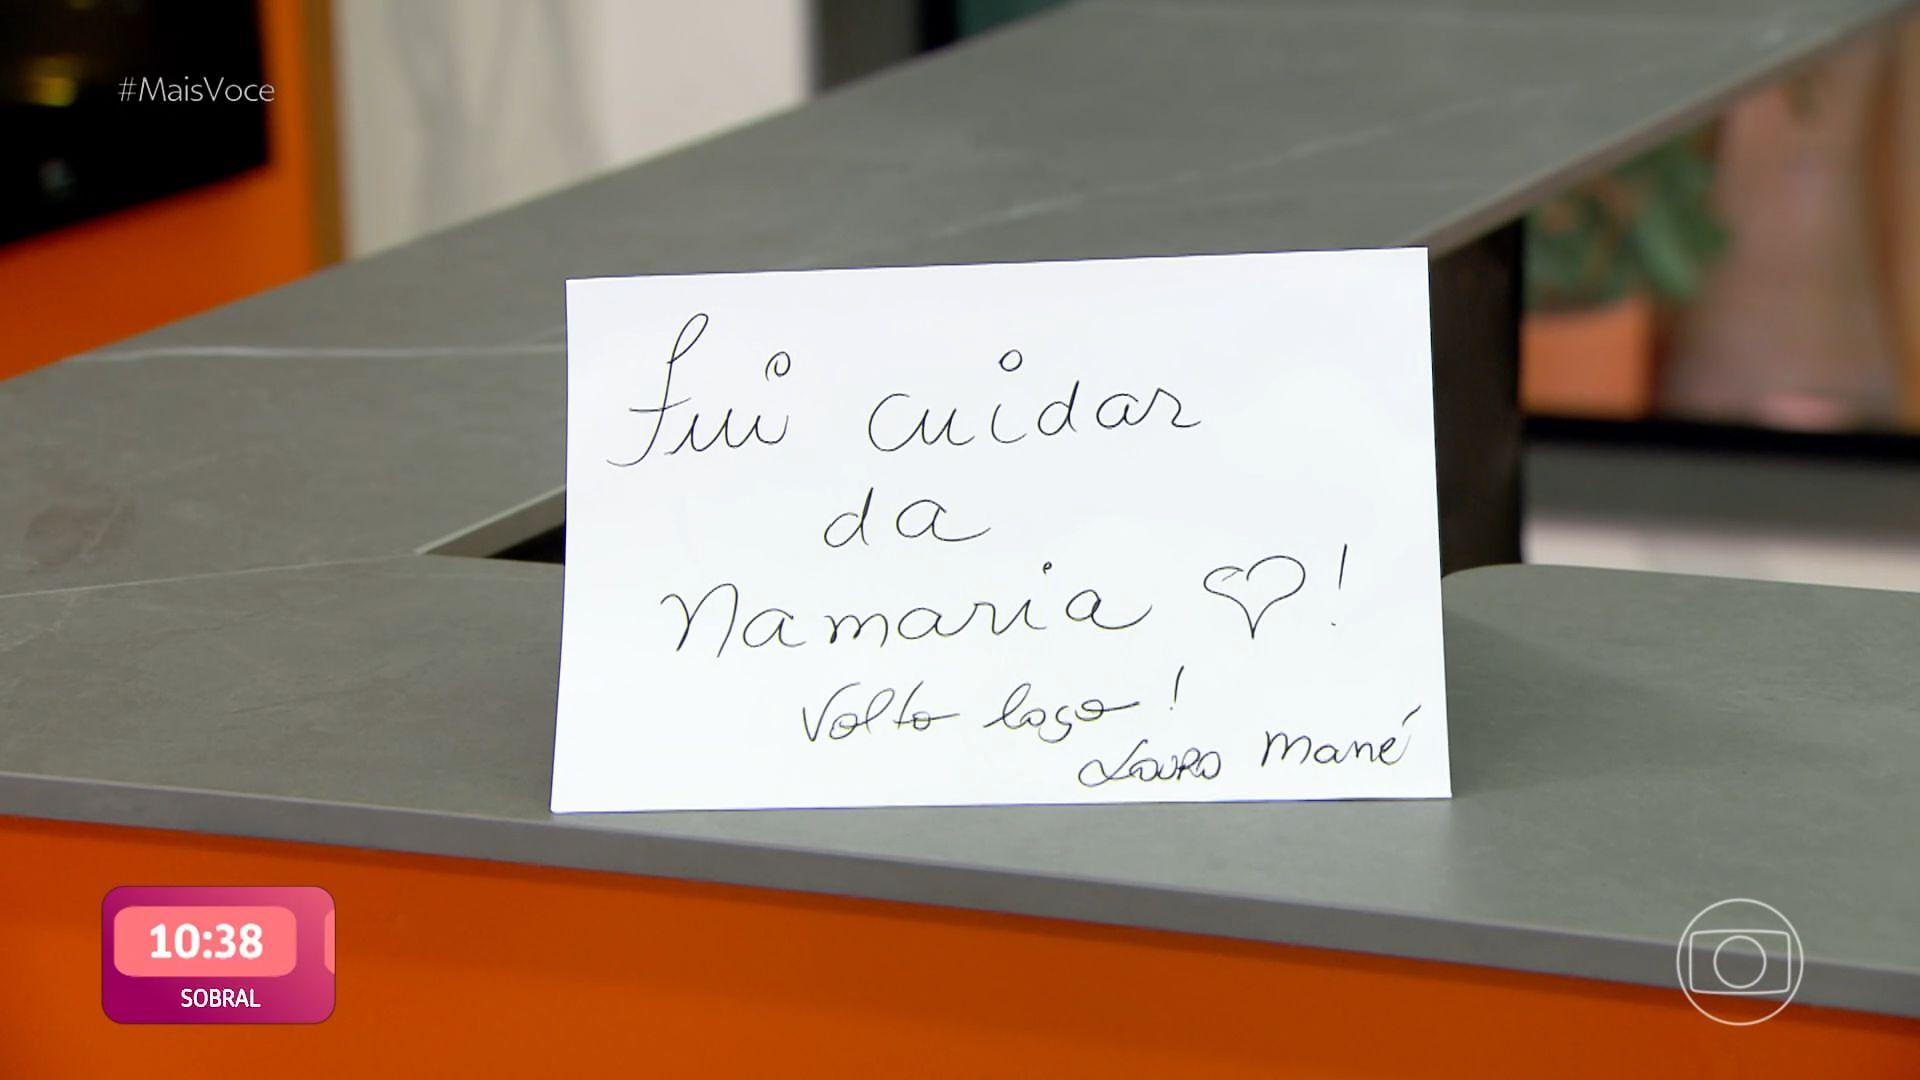 #MaisVoce
Fui cuidar
da
Namaria ♡!
Volto logo!
Louro Mané
10:38
SOBRAL